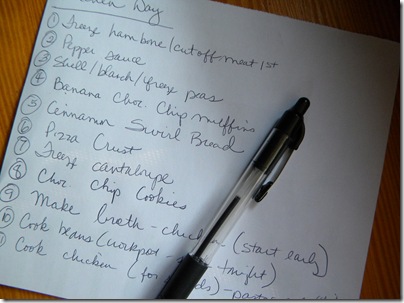 Day
① Freeze hambone/cut off meat 1st
② Pepper sauce
③ Shell/blanch/freeze peas
④ Banana Choc. Chip muffins
⑤ Cinnamon Swirl Bread
⑥ Pizza Crust
⑦ Freeze cantalupe
⑧ Choc Chip Cookies
⑨ Make broth - chicken (start early)
⑩ Cook beans (crockpot - night)
Cook chicken (for